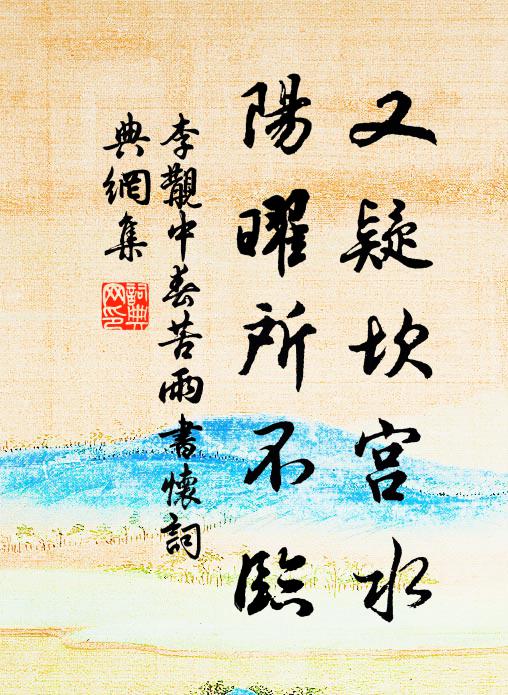 又疑坎宮水
陽曜所不臨
李觀中春苦雨書懷詞
典網集
詞典網印